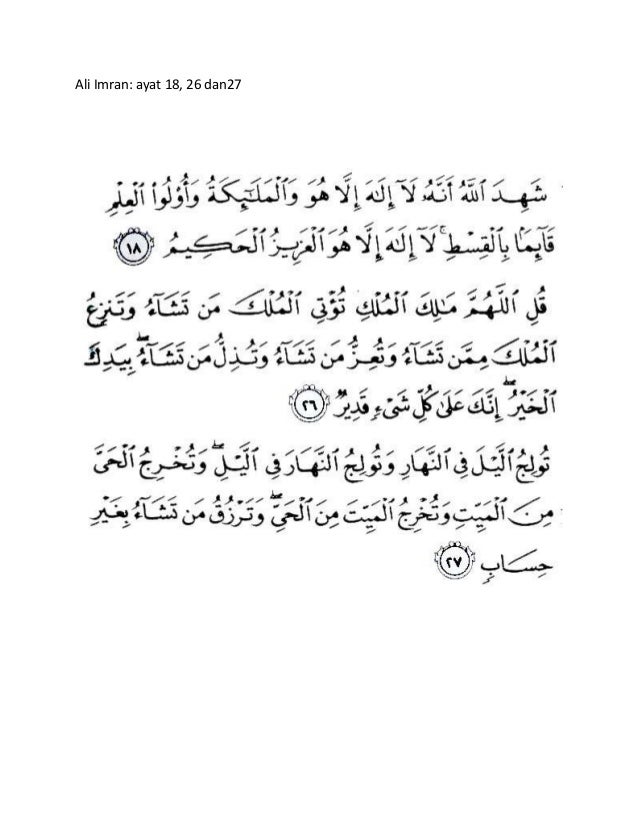 Ali Imran: ayat 18, 26 dan27
شَهِدَ ٱللَّهُ أَنَّهُۥ لَآ إِلَٰهَ إِلَّا هُوَ وَٱلْمَلَٰٓئِكَةُ وَأُو۟لُوا۟ ٱلْعِلْمِ
قَآئِمًۢا بِٱلْقِسْطِ ۚ لَآ إِلَٰهَ إِلَّا هُوَ ٱلْعَزِيزُ ٱلْحَكِيمُ ١٨
قُلِ ٱللَّهُمَّ مَٰلِكَ ٱلْمُلْكِ تُؤْتِى ٱلْمُلْكَ مَن تَشَآءُ وَتَنزِعُ
ٱلْمُلْكَ مِمَّن تَشَآءُ وَتُعِزُّ مَن تَشَآءُ وَتُذِلُّ مَن تَشَآءُ ۖ بِيَدِكَ
ٱلْخَيْرُ ۖ إِنَّكَ عَلَىٰ كُلِّ شَىْءٍ قَدِيرٌ ٢٦
تُولِجُ ٱلَّيْلَ فِى ٱلنَّهَارِ وَتُولِجُ ٱلنَّهَارَ فِى ٱلَّيْلِ ۖ وَتُخْرِجُ ٱلْحَىَّ
مِنَ ٱلْمَيِّتِ وَتُخْرِجُ ٱلْمَيِّتَ مِنَ ٱلْحَىِّ ۖ وَتَرْزُقُ مَن تَشَآءُ بِغَيْرِ
حِسَابٍ ٢٧